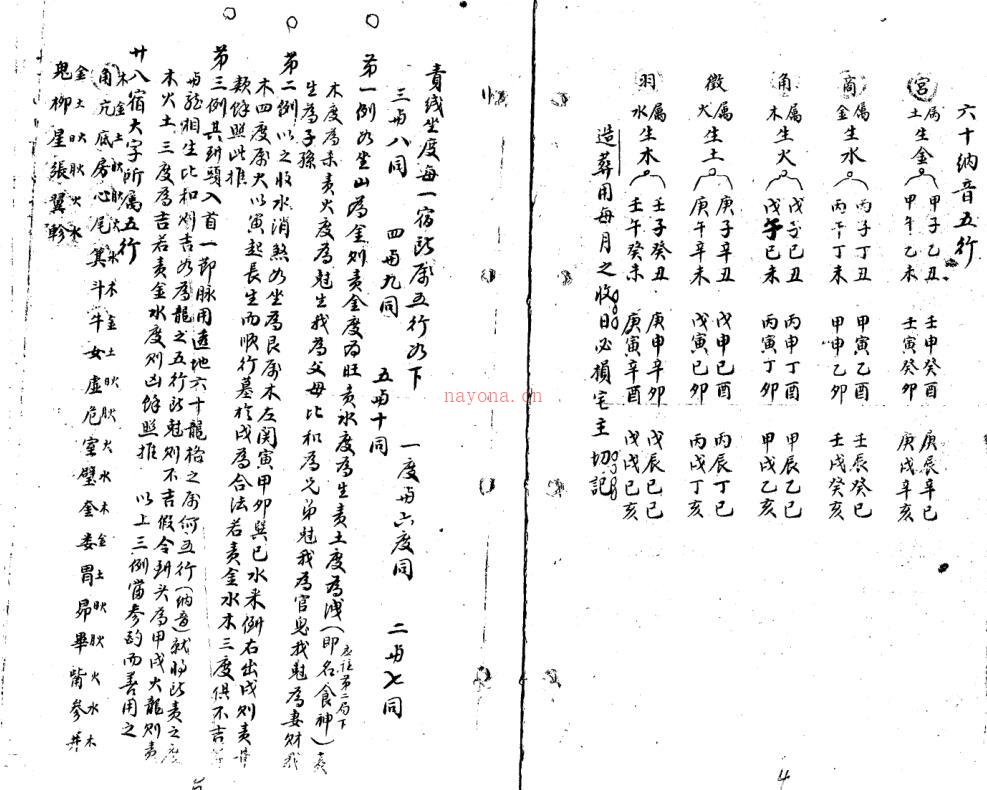 六十納音五行
宮属土生金 甲子乙丑 甲午乙未 壬申癸酉 壬寅癸卯 庚辰辛巳 庚戌辛亥
商属金生水 丙子丁丑 丙午丁未 甲寅乙酉 甲申乙卯 壬辰癸巳 壬戌癸亥
角属木生火 戊子己丑 戊午己未 丙申丁酉 丙寅丁卯 甲辰乙巳 甲戌乙亥
徵属火生土 庚子辛丑 庚午辛未 戊申己酉 戊寅己卯 丙辰丁巳 丙戌丁亥
羽属水生木 壬子癸丑 壬午癸未 庚申辛卯 庚寅辛酉 戊辰己巳 戊戌己亥
造葬用每月之收日必損宅主 切記
4
責线坐度每一宿所属五行如下
一度与六度同 二与七同
三与八同 四与九同 五与十同
第一例如坐山為金则責金度為旺責水度為生責土度為洩(即名食神)
木度為 責火度為尅生我為父母比和為兄弟尅我為官鬼我尅為妻財我
生為子孫
第二例以之收水消煞如坐為艮属木左関寅甲卯巽巳水来例右出戌则責
木四度属火以寅起長生而順行墓於戌為合法若責金水木三度俱不吉
類餘照此推
第三例其到頭入首一節脉用透地六十龍格之属何五行(納音)就將所責之度
与龍相生比和则吉如為龍之五行所尅则不吉假令到头為甲戌火龍则責
木火土三度為吉若責金水度则凶餘照推 以上三例當参酌而善用之
廿八宿大字所属五行
木金土日月火水木金土日月火水木金土日月火水木
角亢底房心尾箕斗牛女虚危室壁奎娄胃昴畢觜参井
金土日月火水
鬼柳星張翼軫
nayona.cn